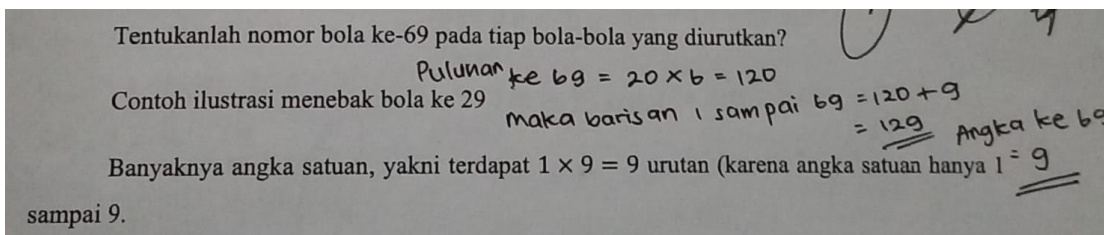 Tentukanlah nomor bola ke-69 pada tiap bola-bola yang diurutkan?
Pulunan ke 69 = 20 × 6 = 120
Contoh ilustrasi menebak bola ke 29
maka barisan 1 sampai 69 = 120 + 9
= 129
Angka ke 69
= 9
Banyaknya angka satuan, yakni terdapat 1 × 9 = 9 urutan (karena angka satuan hanya 1
sampai 9.